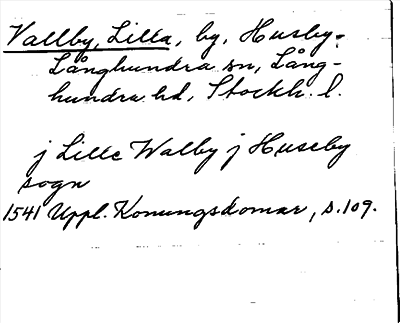 Vallby, Lilla, by, Husby-
Långhundra sn, Lång-
hundra hd, Stockh. l.
j Lille Walby j Huseby
sogn
1541 Uppl. Konungsdomar, s. 109.